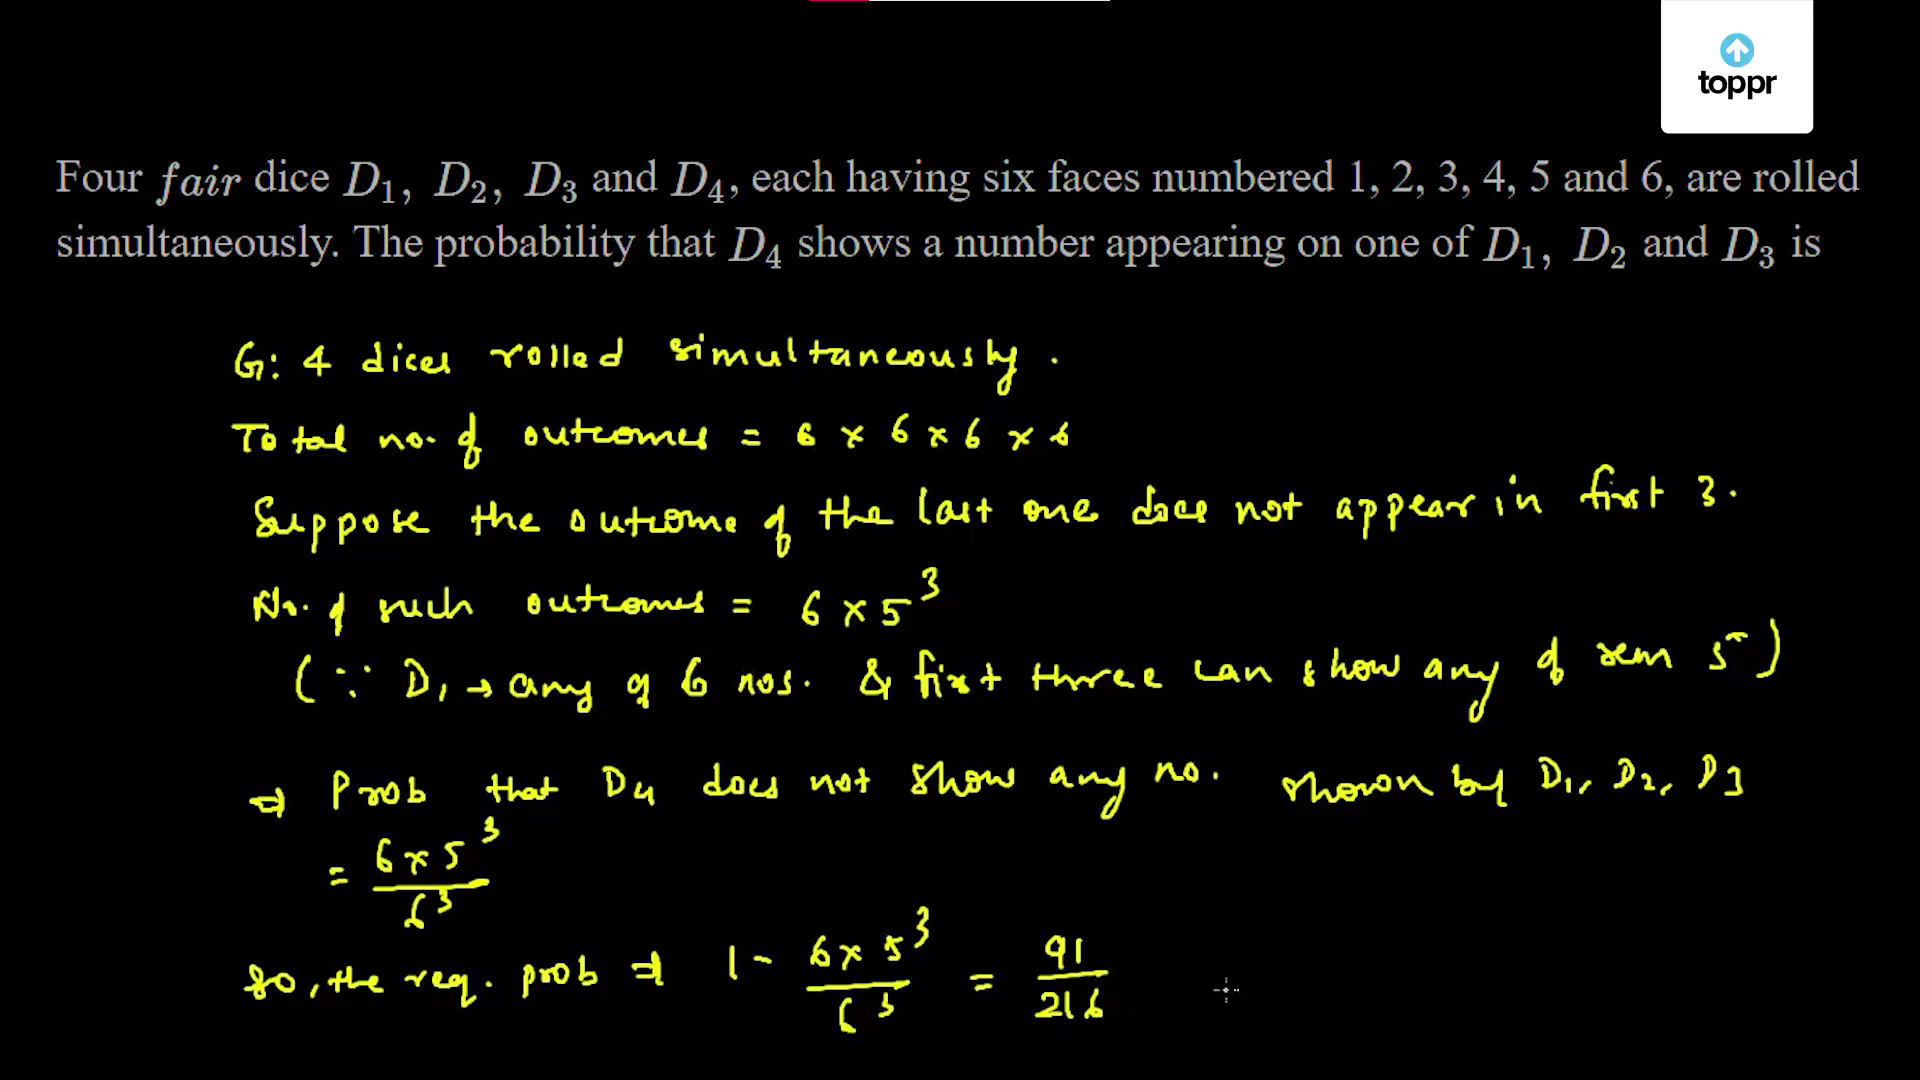 toppr
Four fair dice D₁, D₂, D₃ and D₄, each having six faces numbered 1, 2, 3, 4, 5 and 6, are rolled
simultaneously. The probability that D₄ shows a number appearing on one of D₁, D₂ and D₃ is
G: 4 dices rolled simultaneously.
Total no. of outcomes = 6 × 6 × 6 × 6
Suppose the outcome of the last one does not appear in first 3.
No. of such outcomes = 6 × 5³
(∵ D₁ → any of 6 nos. & first three can show any of rem 5)
⇒ Prob that D₄ does not show any no. shown by D₁, D₂, D₃
= (6 × 5³)/6³
So, the req. prob ⇒ 1 - (6 × 5³)/6³ = 91/216